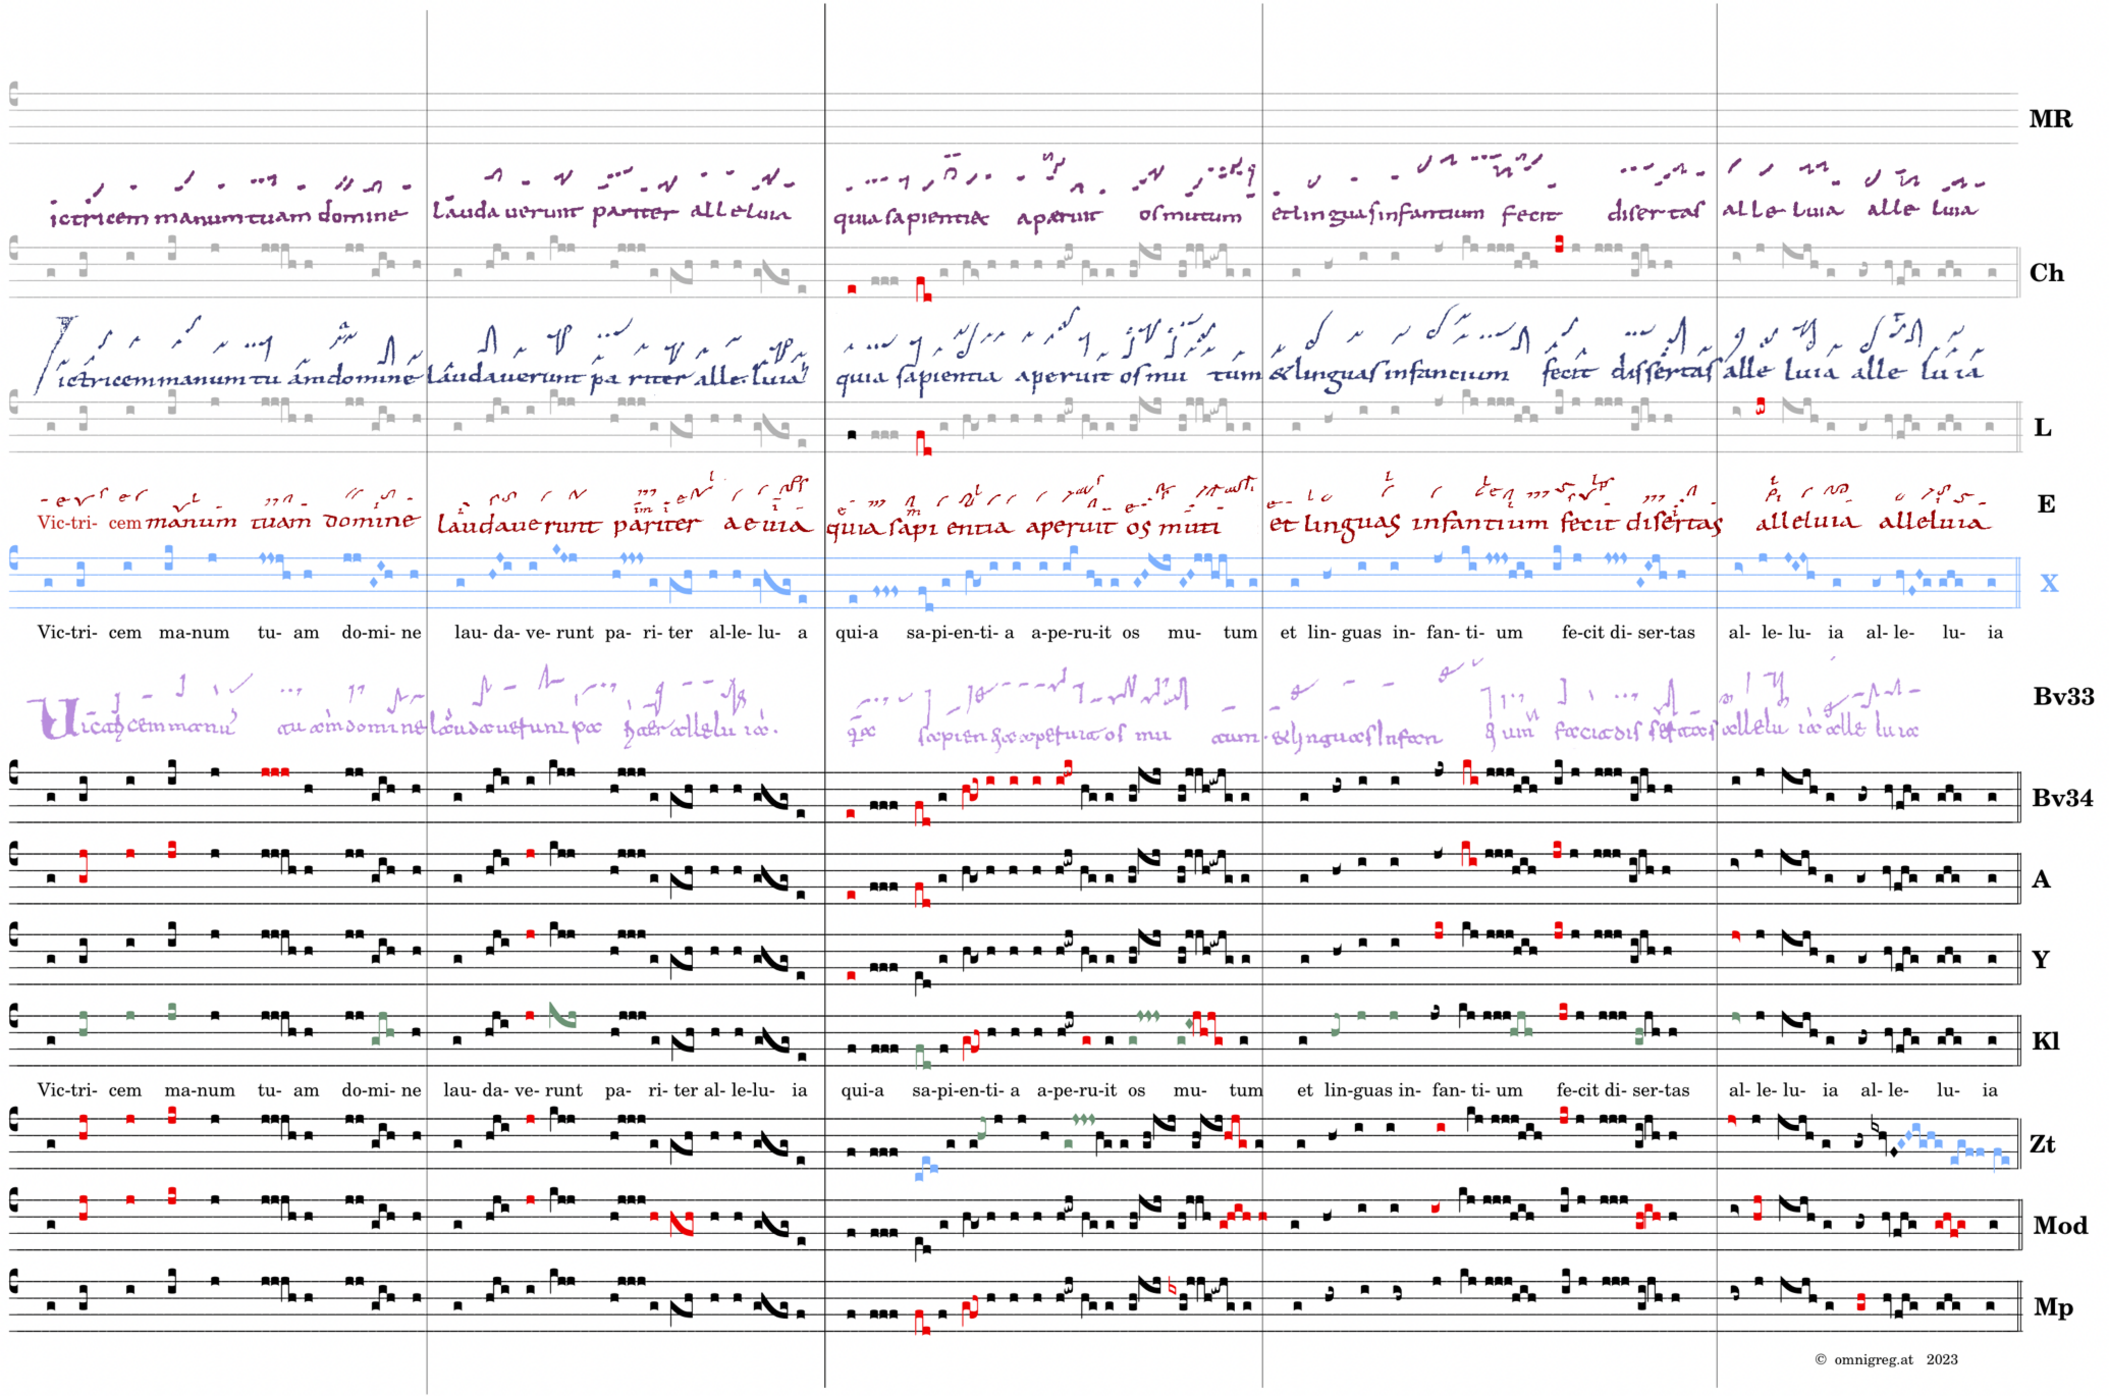 MR
ictricem manum tuam domine laudauerunt pariter alleluia quia sapientia aperuit os mutum et linguas infantium fecit disertas alleluia alleluia
Ch
ictricem manum tu am domine laudauerunt pa riter alleluia quia sapientia aperuit os mu tum &linguas infancium fecit dissertas alle luia alle lu ia
L
Vic-tri- cem manum tuam domine laudauerunt pariter aeuia quia sapi entia aperuit os muti et linguas infantium fecit disertas alleluia alleluia
E
X
Vic-tri- cem ma-num tu- am do-mi- ne lau- da- ve- runt pa- ri- ter al-le- lu- a qui-a sa-pi-en-ti- a a-pe-ru-it os mu- tum et lin- guas in- fan- ti- um fe-cit di- ser-tas al- le- lu- ia al- le- lu- ia
Bv33
Bv34
A
Y
Kl
Vic-tri- cem ma-num tu- am do-mi- ne lau- da- ve- runt pa- ri- ter al- le-lu- ia qui-a sa-pi-en-ti- a a-pe-ru-it os mu- tum et lin-guas in- fan- ti- um fe-cit di- ser-tas al- le- lu- ia al- le- lu- ia
Zt
Mod
Mp
© omnigreg.at 2023